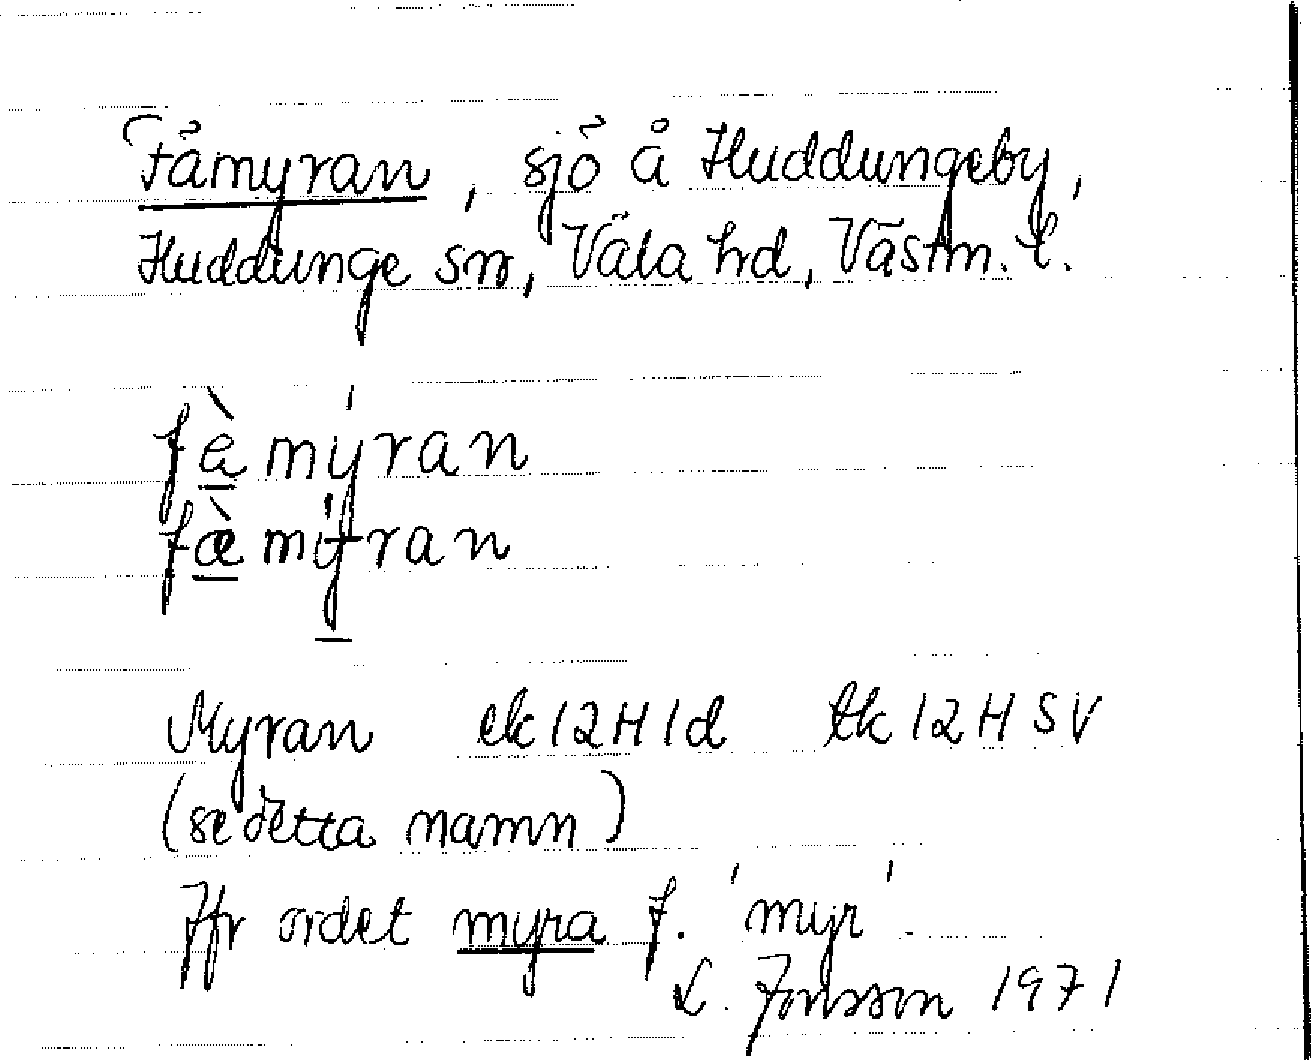 Fåmyran, sjö å Huddungeby,
Huddunge sn, Våla hd, Västm. l.
fàmýran
fæ̀mýran
Myran ek 12H1d tk 12H SV
(se detta namn)
Jfr ordet myra f. 'myr'.
L. Jonsson 1971